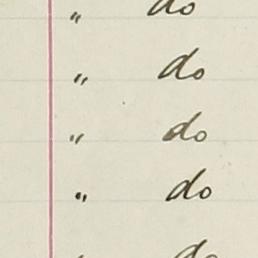 " do
" do
" do
" do
" do